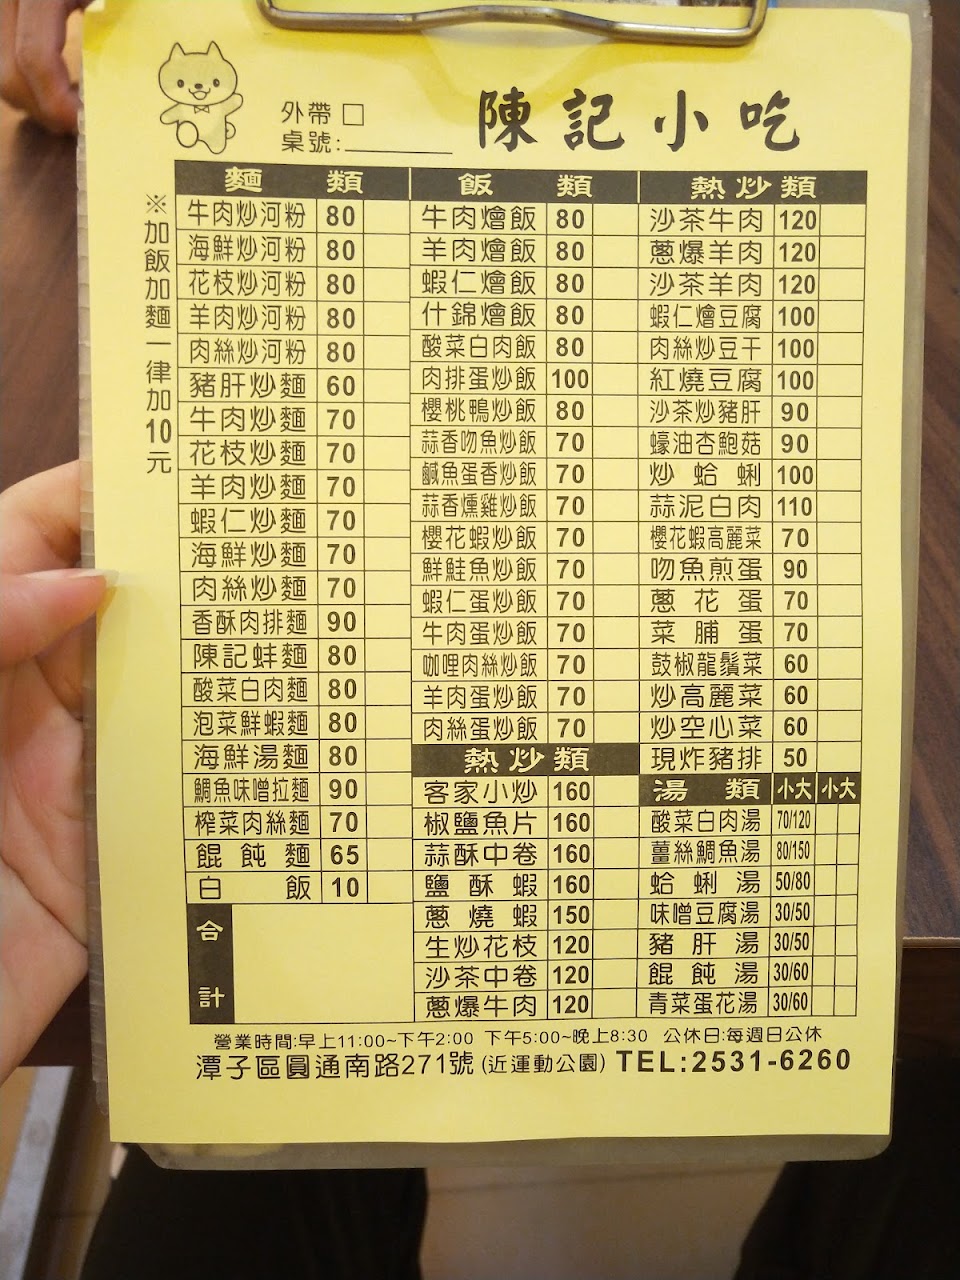 外帶□
桌號:
陳記小吃
※加飯加麵一律加10元
麵類
牛肉炒河粉 80
海鮮炒河粉 80
花枝炒河粉 80
羊肉炒河粉 80
肉絲炒河粉 80
豬肝炒麵 60
牛肉炒麵 70
花枝炒麵 70
羊肉炒麵 70
蝦仁炒麵 70
海鮮炒麵 70
肉絲炒麵 70
香酥肉排麵 90
陳記蚌麵 80
酸菜白肉麵 80
泡菜鮮蝦麵 80
海鮮湯麵 80
鯛魚味噌拉麵 90
榨菜肉絲麵 70
餛飩麵 65
白飯 10
合計
飯類
牛肉燴飯 80
羊肉燴飯 80
蝦仁燴飯 80
什錦燴飯 80
酸菜白肉飯 80
肉排蛋炒飯 100
櫻桃鴨炒飯 80
蒜香吻魚炒飯 70
鹹魚蛋香炒飯 70
蒜香燻雞炒飯 70
櫻花蝦炒飯 70
鮮鮭魚炒飯 70
蝦仁蛋炒飯 70
牛肉蛋炒飯 70
咖哩肉絲炒飯 70
羊肉蛋炒飯 70
肉絲蛋炒飯 70
熱炒類
客家小炒 160
椒鹽魚片 160
蒜酥中卷 160
鹽酥蝦 160
蔥燒蝦 150
生炒花枝 120
沙茶中卷 120
蔥爆牛肉 120
熱炒類
沙茶牛肉 120
蔥爆羊肉 120
沙茶羊肉 120
蝦仁燴豆腐 100
肉絲炒豆干 100
紅燒豆腐 100
沙茶炒豬肝 90
蠔油杏鮑菇 90
炒蛤蜊 100
蒜泥白肉 110
櫻花蝦高麗菜 70
吻魚煎蛋 90
蔥花蛋 70
菜脯蛋 70
鼓椒龍鬚菜 60
炒高麗菜 60
炒空心菜 60
現炸豬排 50
湯類 小大 小大
酸菜白肉湯 70/120
薑絲鯛魚湯 80/150
蛤蜊湯 50/80
味噌豆腐湯 30/50
豬肝湯 30/50
餛飩湯 30/60
青菜蛋花湯 30/60
營業時間:早上11:00~下午2:00 下午5:00~晚上8:30 公休日:每週日公休
潭子區圓通南路271號(近運動公園) TEL:2531-6260